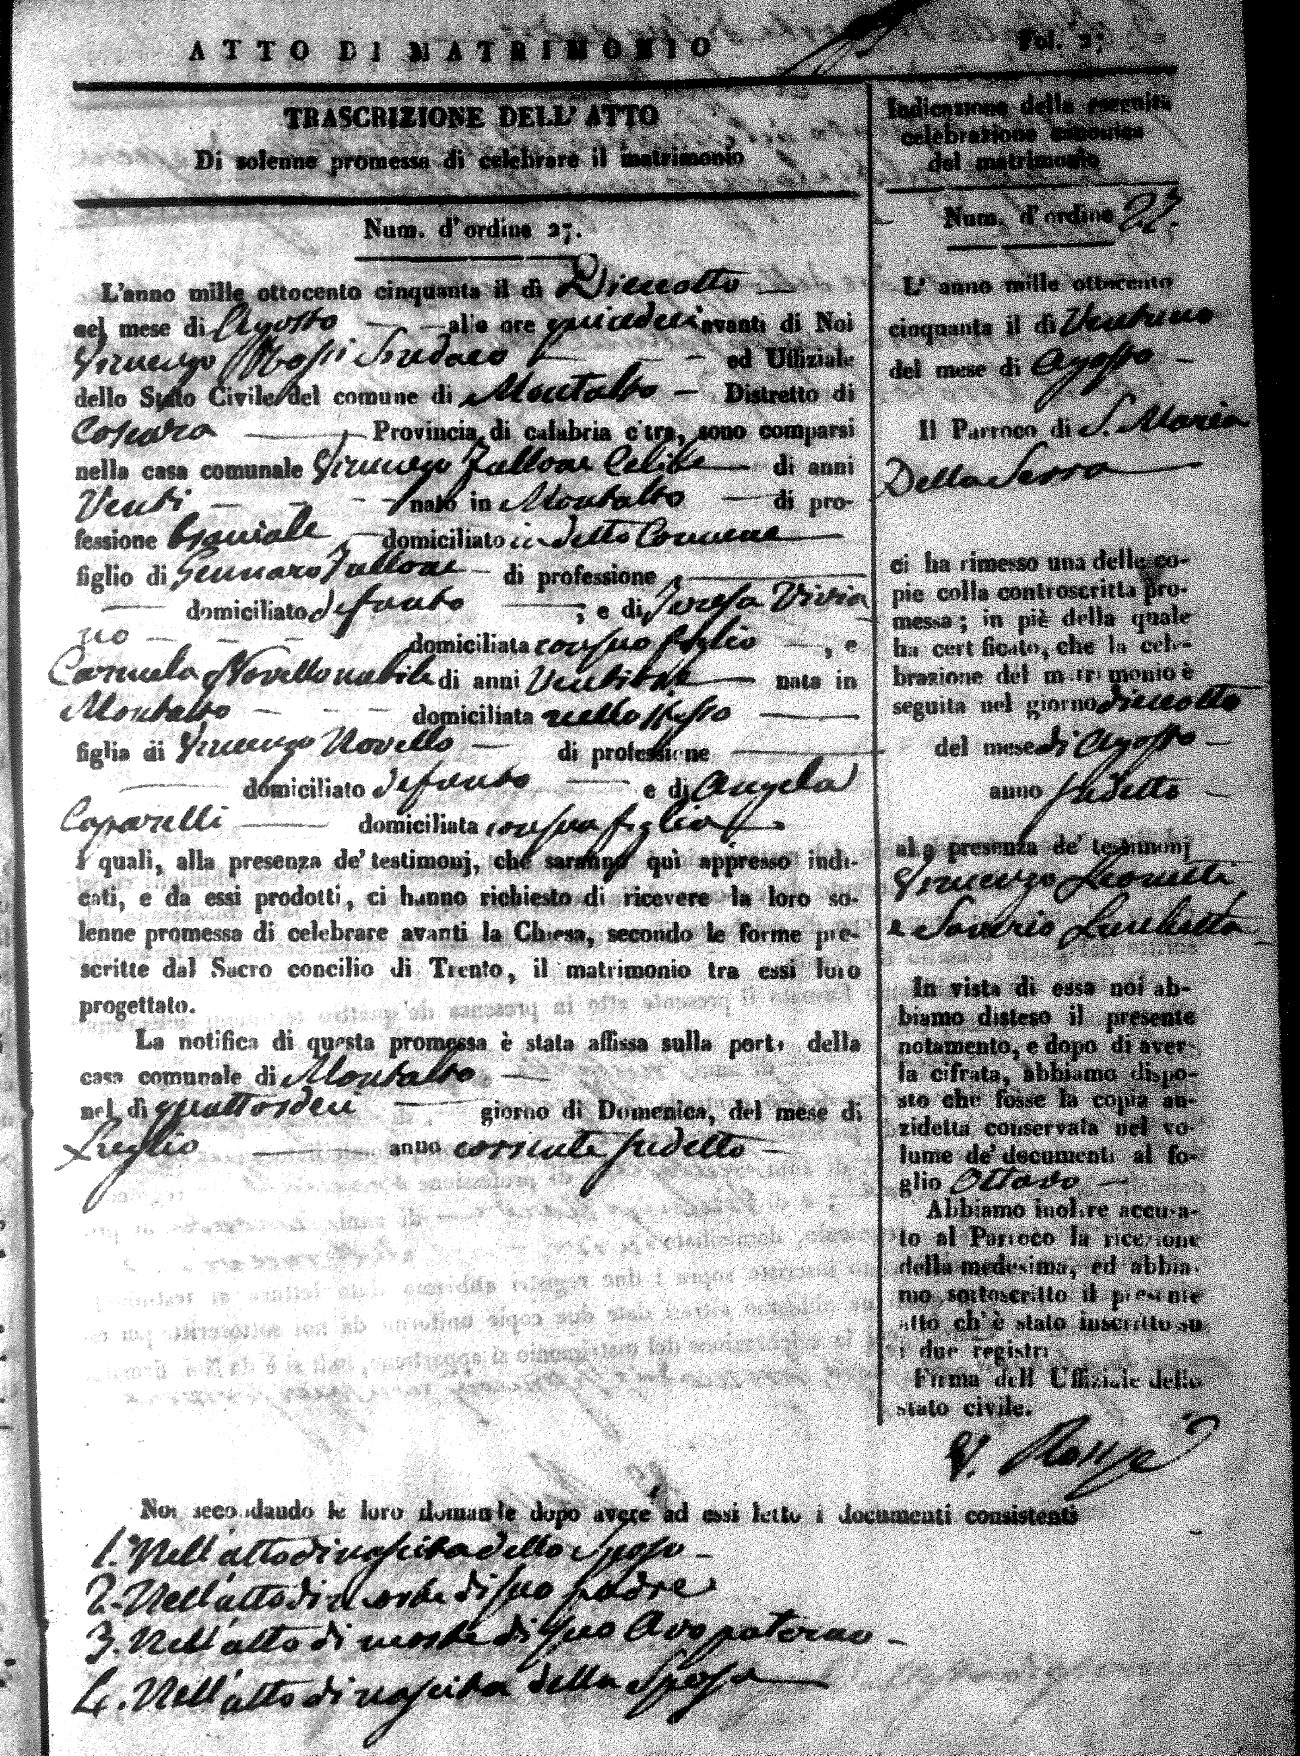 ATTO DI MATRIMONIO
Fol. 27
TRASCRIZIONE DELL' ATTO
Di solenne promessa di celebrare il matrimonio
Num. d'ordine 27.
L'anno mille ottocento cinquanta il dì Dieciotto
nel mese di Agosto alle ore quindeci avanti di Noi
Vincenzo Rossi Sindaco ed Uffiziale
dello Stato Civile del comune di Montalto Distretto di
Cosenza Provincia di calabria citra, sono comparsi
nella casa comunale Vincenzo Fallone Celibe di anni
Venti nato in Montalto di pro-
fessione domiciliato in detto Comune
figlio di Gennaro Fallone di professione
domiciliato defunto ; e di Teresa Vivia
no domiciliata con suo figlio , e
Carmela Novello nubile di anni nata in
Montalto domiciliata nello stesso
figlia di Vincenzo Novello di professione
domiciliato defunto e di Angela
Caparelli domiciliata con sua figlia
I quali, alla presenza de' testimonj, che saranno quì appresso indi-
cati, e da essi prodotti, ci hanno richiesto di ricevere la loro so-
lenne promessa di celebrare avanti la Chiesa, secondo le forme pre-
scritte dal Sacro concilio di Trento, il matrimonio tra essi loro
progettato.
La notifica di questa promessa è stata affissa sulla porta della
casa comunale di Montalto
nel dì quattordeci giorno di Domenica, del mese di
Luglio anno corrente sudetto
Indicazione della eseguita
celebrazione canonica
del matrimonio
Num. d'ordine 27.
L' anno mille ottocento
cinquanta il dì Ventuno
del mese di Agosto
Il Parroco di S. Maria
Della Serra
ci ha rimesso una delle co-
pie colla controscritta pro-
messa; in piè della quale
ha certificato, che la cele-
brazione del matrimonio è
seguita nel giorno dieciotto
del mese di Agosto
anno sudetto
alla presenza de' testimonj
Vincenzo Leonetti
e Saverio Luchetta
In vista di essa noi ab-
biamo disteso il presente
notamento, e dopo di aver-
la cifrata, abbiamo dispo-
sto che fosse la copia an-
zidetta conservata nel vo-
lume de' documenti al fo-
glio Ottavo
Abbiamo inoltre accusa-
to al Parroco la ricezione
della medesima, ed abbia-
mo sottoscritto il presente
atto ch'è stato inscritto su
i due registri
Firma dell Uffiziale dello
stato civile.
V. Rossi
Noi secondando le loro domande dopo avere ad essi letto i documenti consistenti
1. Nell'atto di nascita dello Sposo
2. Nell'atto di morte di suo padre
3. Nell'atto di morte di suo Avo paterno
4. Nell'atto di nascita della Sposa